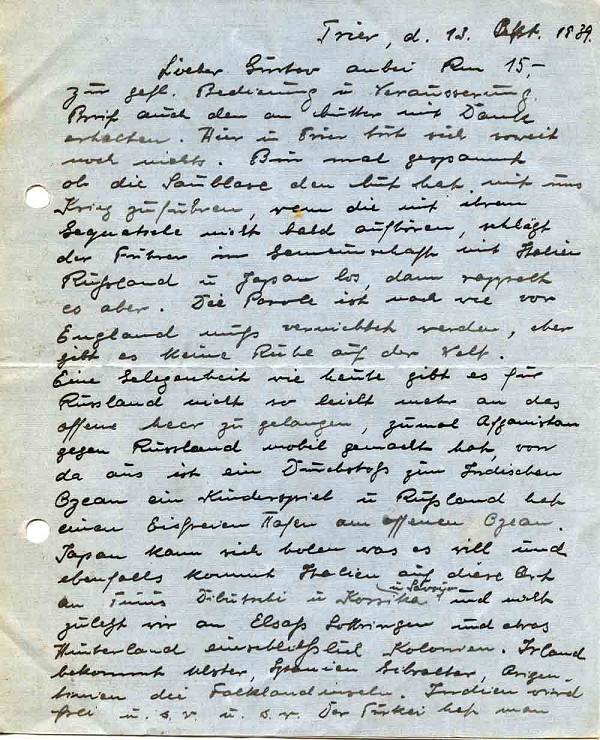 Trier, d. 13. Okt. 1939.
Lieber Gustav anbei Rm 15,-
zur gefl. Bedienung u Veräusserung.
Brief auch den an Mutter mit Dank
erhalten. Hier in Trier tut sich soweit
noch nichts. Bin mal gespannt
ob die Saublase den Mut hat mit uns
Krieg zuführen, wenn die mit ihrem
Gequatsche nicht bald aufhören, schlägt
der Führer in Gemeinschaft mit Italien
Rußland u Japan los, dann rappelt
es aber. Die Parole ist nach wie vor
England muß vernichtet werden, eher
gibt es keine Ruhe auf der Welt.
Eine Gelegenheit wie heute gibt es für
Russland nicht so leicht mehr an das
offene Meer zu gelangen, zumal Afganistan
gegen Russland mobil gemacht hat, von
da aus ist ein Durchstoß zum Indischen
Ozean ein Kinderspiel u Rußland hat
einen Eisfreien Hafen am offenen Ozean.
Japan kann sich holen was es will und
ebenfalls kommt Italien auf diese Art
u Savoyen
an Tunis Dibutschi u Korsika und nicht
zuletzt wir an Elsaß Lothringen und etwas
Hinterland einschließlich Kolonien. Irland
bekommt Ulster, Spanien Gibralter, Argen-
tinien die Falklandinseln. Indien wird
frei u. s. w. u. s. w. Der Türkei hat man